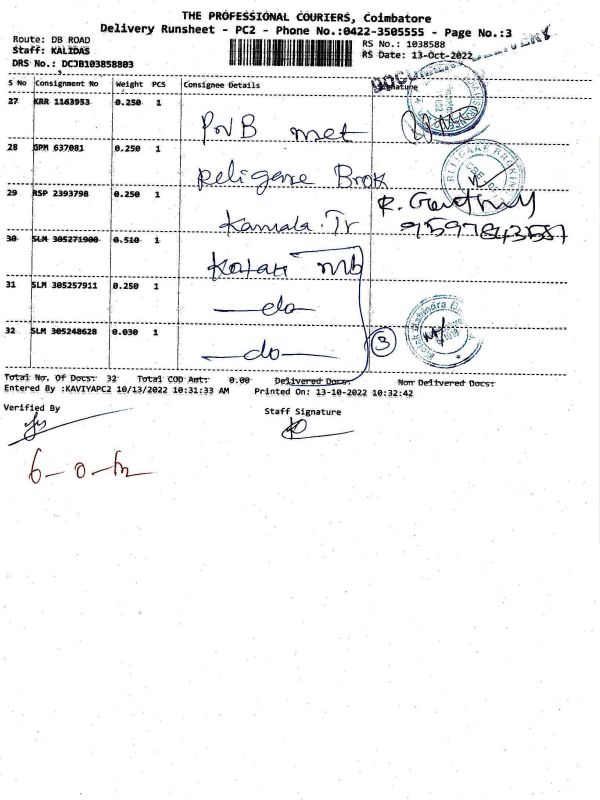 THE PROFESSIONAL COURIERS, Coimbatore
Delivery Runsheet - PC2 - Phone No.:0422-3505555 - Page No.:3
Route: DB ROAD
Staff: KALIDAS
DRS No.: DCJB103858803
RS No.: 1038588
RS Date: 13-Oct-2022
S No Consignment No Weight PCS Consignee Details Signature
27 KRR 1163953 0.250 1
PNB met
28 GPM 637081 0.250 1
Religare Brok
29 RSP 2393798 0.250 1
R. Gandhi
Kamala Tr
9597843587
30 SLM 305271900 0.510 1
Kotak mb
31 SLM 305257911 0.250 1
—do—
32 SLM 305248628 0.030 1
—do—
3
Total No. Of Docs: 32 Total COD Amt: 0.00 Delivered Docs: Non Delivered Docs:
Entered By :KAVIYAPC2 10/13/2022 10:31:33 AM Printed On: 13-10-2022 10:32:42
Verified By
Staff Signature